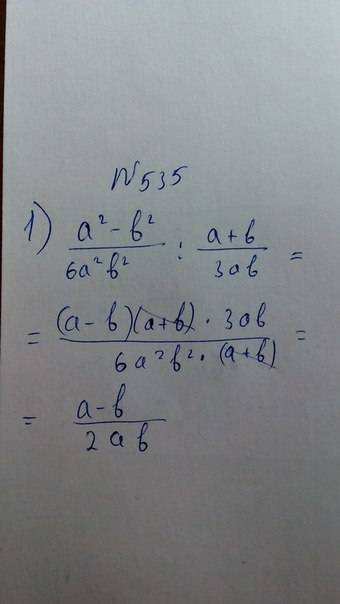 N535
1) (a² - b²)/(6a²b²) : (a+b)/(3ab) =
= ((a-b)(a+b) · 3ab)/(6a²b² · (a+b)) =
= (a-b)/(2ab)